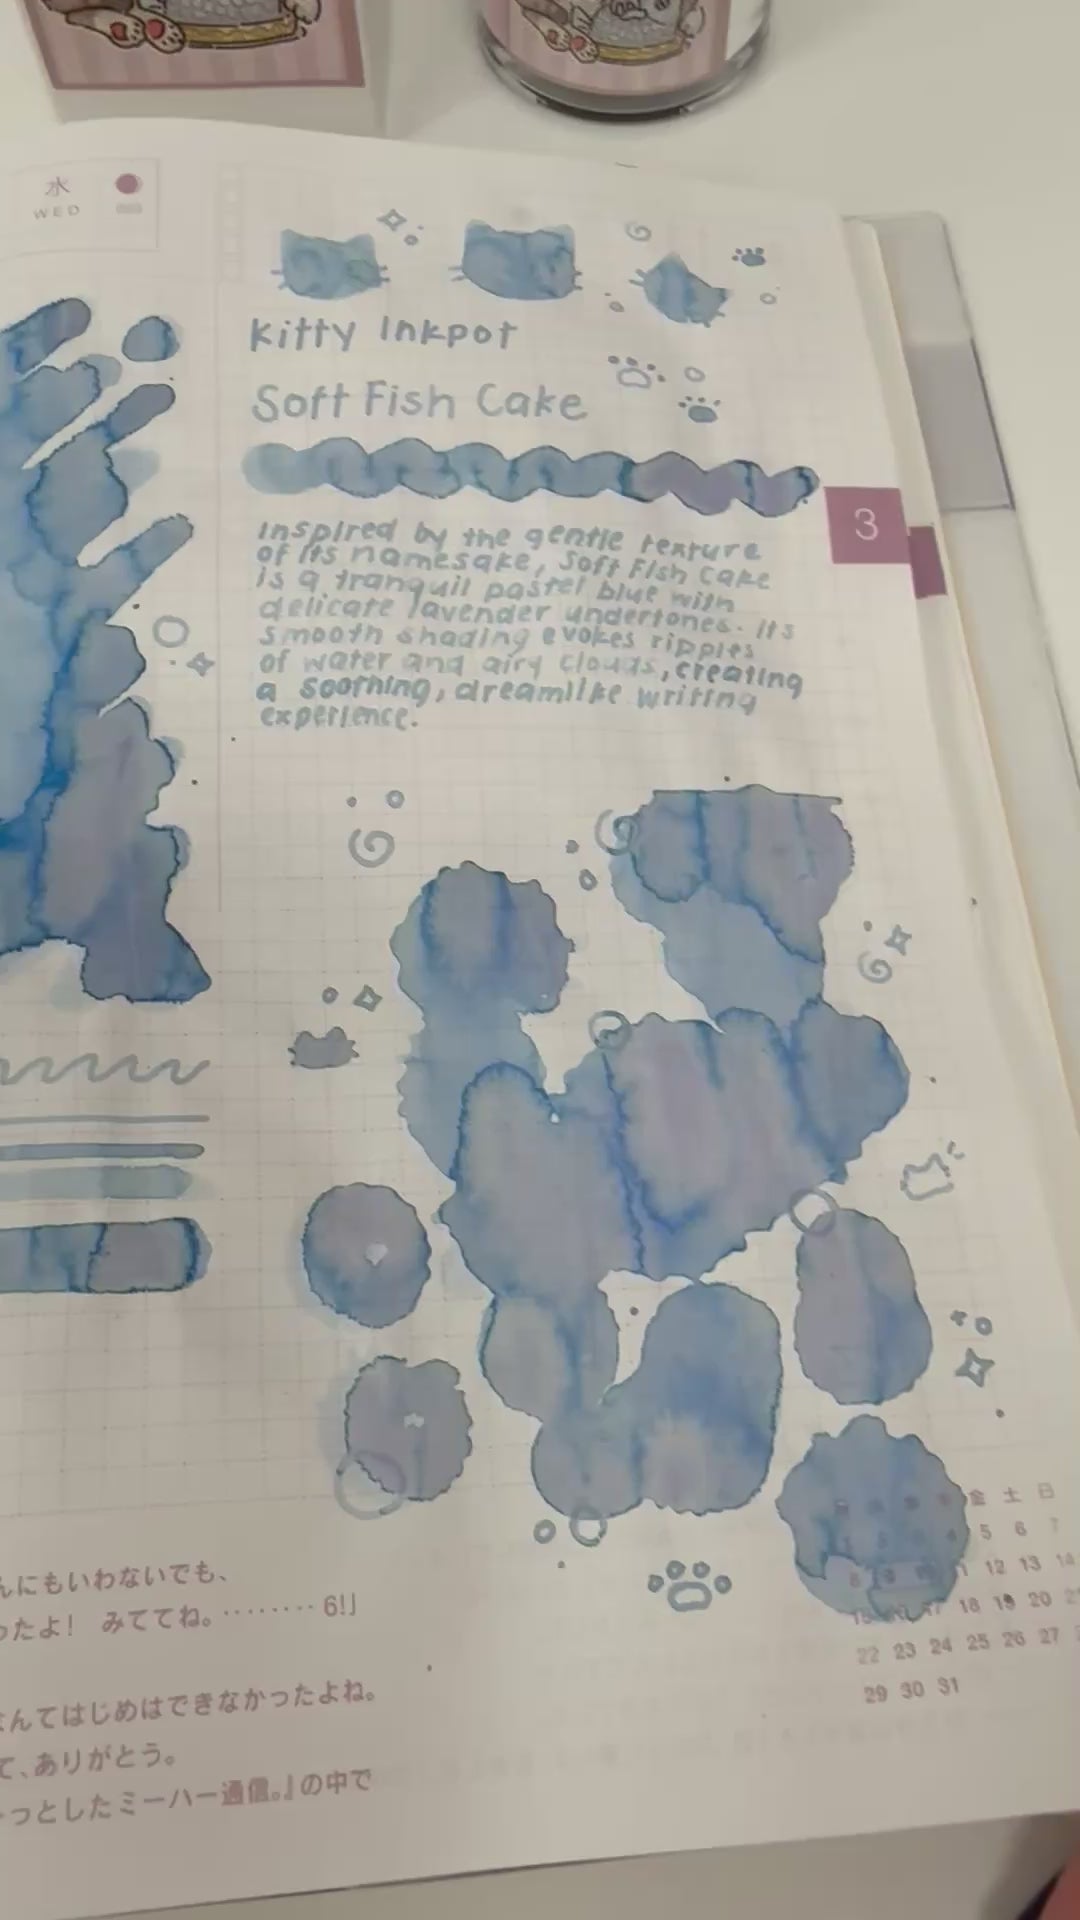 水
WED
Kitty Inkpot
Soft Fish Cake
3
Inspired by the gentle texture
of its namesake, Soft Fish Cake
is a tranquil pastel blue with
delicate lavender undertones. Its
smooth shading evokes ripples
of water and airy clouds, creating
a soothing, dreamlike writing
experience.
金 土 日
5 6 7
11 12 13 14
15 16 17 18 19 20
22 23 24 25 26 27
29 30 31
んにもいわないでも、
ったよ! みててね。‥‥‥‥6!」
なんてはじめはできなかったよね。
て、ありがとう。
っとしたミーハー通信。』の中で